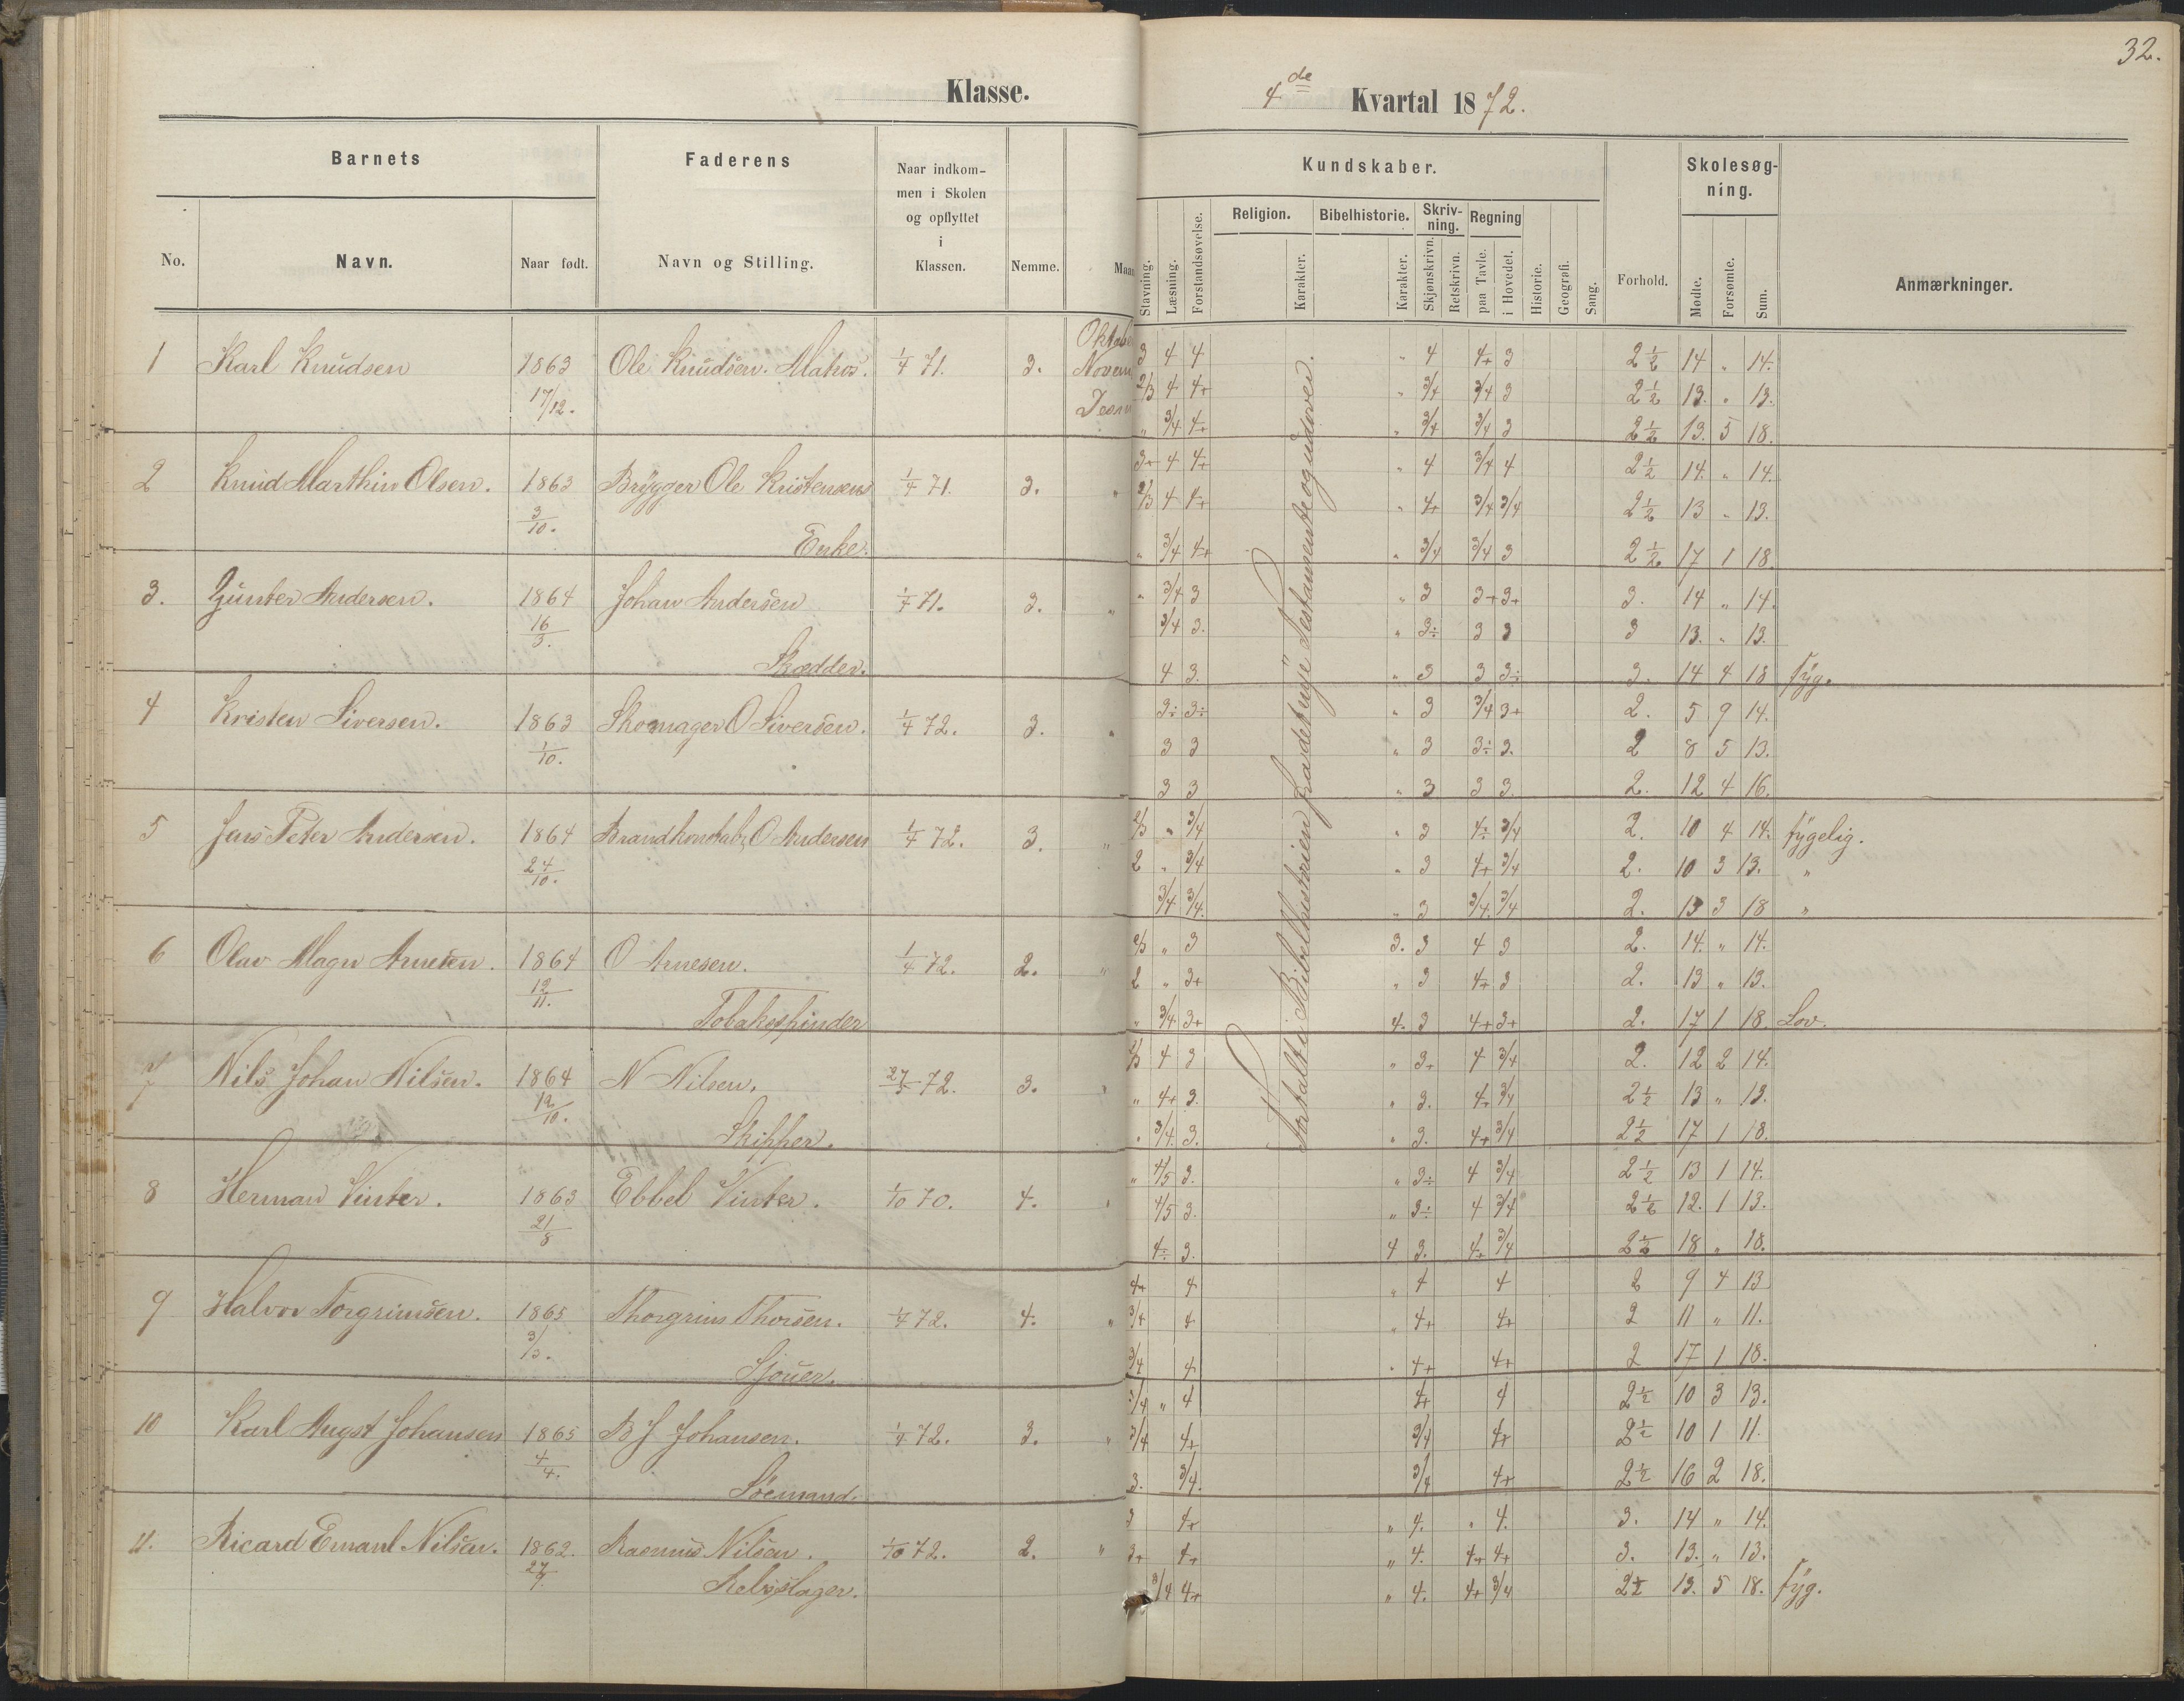 32.
Klasse.
4de Kvartal 1872.
Barnets
Faderens
Naar indkom-
men i Skolen
og opflyttet
i
Klassen.
No.
Navn.
Naar født.
Navn og Stilling.
Nemme.
Maan
Kundskaber.
Skolesøg-
ning.
Stavning.
Læsning.
Forstandsøvelse.
Religion.
Karakter.
Bibelhistorie.
Karakter.
Skriv-
ning.
Skjønskrivn.
Retskrivn.
Regning
paa Tavle.
i Hovedet.
Historie.
Geografi.
Sang.
Forhold.
Mødte.
Forsømte.
Sum.
Anmærkninger.
Fortalt i Bibelhistorien fra det nye Testamente og udover.
1 Karl Knudsen 1863 17/12. Ole Knudsen. Matros. 1/4 71. 3. Oktober 3 4 4 " 4 4+ 3 2 1/2 14 " 14.
Novem 2/3 4 4+ " 3/4 3/4 3 2 1/2 13. " 13.
" 3/4 4+ " 3/4 3/4 3 2 1/2 13. 5 18.
2 Knud Marthin Olsen. 1863 3/10. Brygger Ole Kristensens 1/4 71. 3. " 3+ 4 4+ " 4 3/4 4 2 1/2 14. " 14.
2/3 4 4+ " 4+ 3/4 3/4 2 1/2 13 " 13.
Enke. " 3/4 4+ " 3/4 3/4 3 2 1/2 17 1 18.
3. Gunter Andersen. 1864 16/3. Johan Andersen 1/4 71. 3. " " 3/4 3 " 3 3+ 3+ 3. 14 " 14.
3/4 3. " 3÷ 3 3 3 13. " 13.
Skrædder. 4 3. " 3 3 3÷ 3. 14 4 18 syg.
4 Kristen Siversen. 1863 1/10. Skomager O Siversen. 1/4 72. 3. " 3÷ 3÷ " 3 3/4 3+ 2. 5 9 14.
3 3 " 3 3÷ 3. 2 8 5 13.
3 3 " 3 3 3. 2. 12 4 16.
5 Jens Peter Andersen. 1864 24/10. O Andersen 1/4 72. 3. " 2/3 " 3/4 " 3 4÷ 3/4 2. 10 4 14. sygelig.
2 " 3/4 " 3 4+ 3/4 2. 10 3 13. "
3/4 3/4. " 3 3/4. 3/4 2. 13 3 18 "
6 Olav Magn Arnesen. 1864 12/11. O Arnesen. 1/4 72. 2. " 2/3 " 3 3. 3 4 3 2. 14. " 14.
2 " 3+ " 3 4+ 3 2. 13 " 13.
Tobakspinder " 3/4 3+ 4. 3 4+ 3+ 2. 17 1 18. Lov.
7 Nils Johan Nilsen. 1864 12/10. N Nilsen. 72. 3. " 2/3 4 3 " 3+ 4 3/4 2. 12 2 14.
" 4+ 3. " 3. 4+ 3/4 2 1/2 13 " 13.
Skipper. " 3/4. 3. " 3. 4+ 3/4 2 1/2 17 1 18.
8 Herman Vinter. 1863 21/8 Ebbel Vinter. 1/10 70. 4. " " 4/5 3. " 3÷ 4 3/4 2 1/2 13 1 14.
4/5 3. " 3÷ 4 3/4 2 1/2 12. 1 13.
4÷ 3. 4 3. 4+ 3/4 2 1/2 18 " 18.
9 Halvor Torgrimsen. 1865 3/3. Thorgrim Thorsen. 1/4 72. 4. " 4+ 4 " 4 4 2 9 4 13
3/4 4 " 4+ 4+ 2 11 " 11.
Sjouer. 3/4 4 " 4+ 4+ 2 17 1 18.
10 Karl Augst Johansen 1865 4/4. B J Johansen. 1/4 72. 3. " 3/4 " 4 4+ 4 2 1/2 10 3 13.
3/4 4+ 3/4 4+ 2 1/2 10 1 11.
Söemand. 3. 3/4. 3/4 4+ 2 1/2 16 2 18.
11. Ricard Emanl Nilsen. 1862. Rasmus Nilsen. 1/10 72. 2. " 3 4+ " 4. " 4. 3. 14 " 14.
3+ 4+ " 4. 4+ 4+ 3. 13. " 13.
Rebslager. 3/4 4+ " 4. 4+ 3/4 2 1/2 13. 5 18. syg.